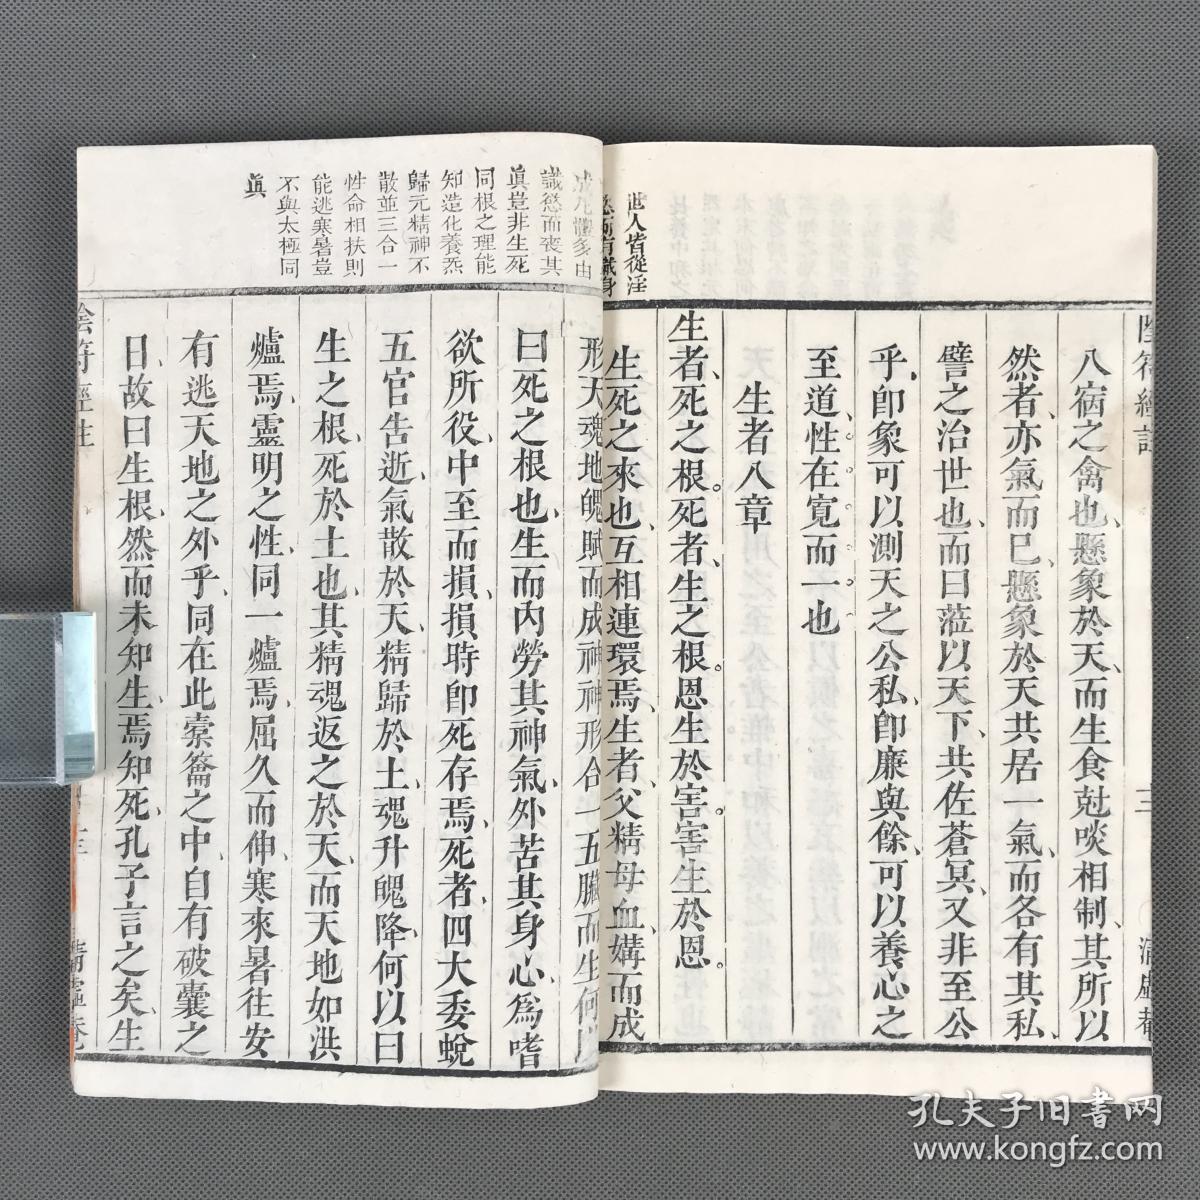 世人皆從淫
慾而有識身
陰符經註
三
清虛
八病之禽也懸象於天而生食尅啖相制其所以
然者亦氣而已懸象於天共居一氣而各有其私
譬之治世也而曰蒞以天下共佐蒼冥又非至公
乎卽象可以測天之公私卽廉與餘可以養心之
至道性在寬而一也
生者八章
生者死之根死者生之根恩生於害害生於恩
生死之來也互相連環焉生者父精母血媾而成
成凡體多由
識慾而喪其
眞豈非生死
同根之理能
知造化養炁
歸元精神不
散並三合一
性命相扶則
能逃寒暑豈
不與太極同
眞
形天魂地魄賦而成神神形合一五臟而生何以
曰死之根也生而內勞其神氣外苦其身心為嗜
欲所役中至而損損時卽死存焉死者四大委蛻
五官告逝氣散於天精歸於土魂升魄降何以曰
生之根死於土也其精魂返之於天而天地如洪
爐焉靈明之性同一爐焉屈久而伸寒來暑往安
有逃天地之外乎同在此橐籥之中自有破囊之
日故曰生根然而未知生焉知死孔子言之矣生
陰符經註
三
清虛
孔夫子旧书网
www.kongfz.com